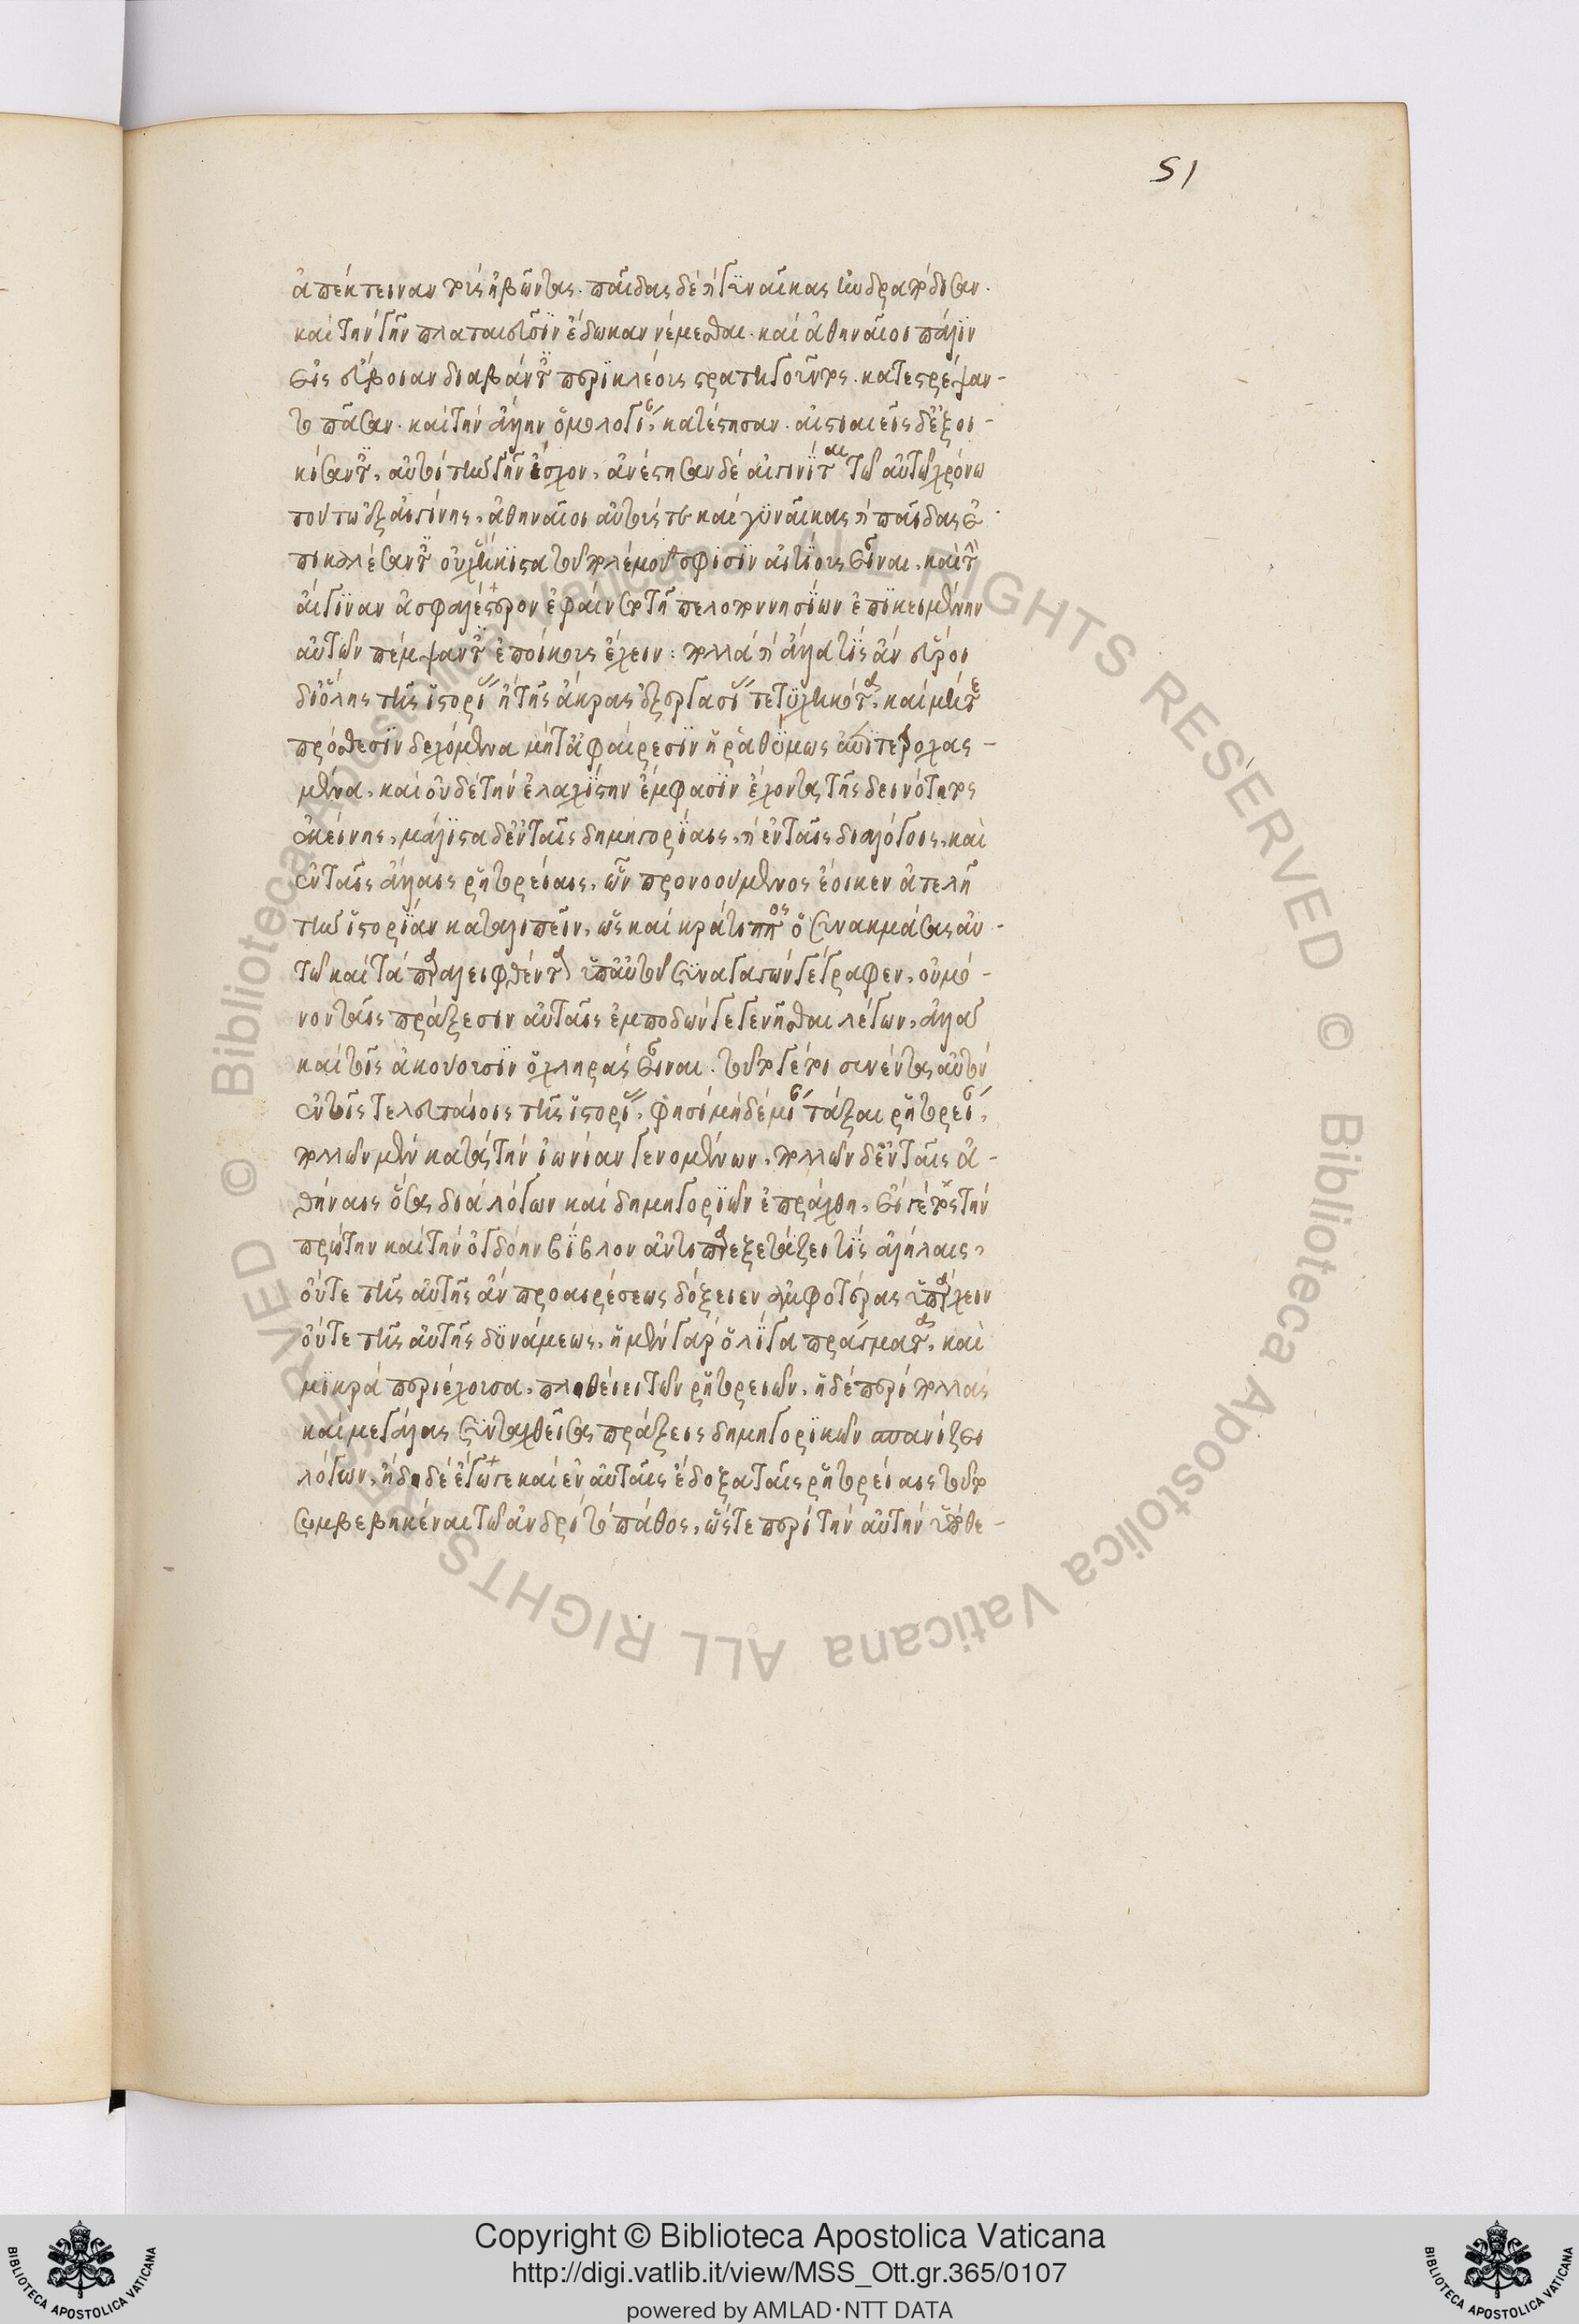 51
ἀπέκτειναν τοὺς ἡβῶντας. παῖδας δὲ καὶ γυναῖκας ἠνδραπόδισαν.
καὶ τὴν γῆν πλαταιεῦσϊν ἔδωκαν νέμεσθαι. καὶ ἀθηναῖοι πάλϊν
εἰς εὔβοιαν διαβάντες περϊκλέους στρατηγοῦντος. κατεστρέψαν-
το πᾶσαν. καὶ τὴν ἄλλην ὁμολογία κατέστησαν. αἰστιαιεῖς δ' ἐξοι-
κίσαντες, αὐτοὶ τὴν γῆν ἔσχον, ἀνέστησαν δὲ αἰγινήτας τῶ αὐτῶ χρόνω
τούτω ἐξ αἰγίνης, ἀθηναῖοι αὐτούς τε καὶ γυναῖκας καὶ παῖδας ἐ
πικαλέσαντες οὐχ ἥκϊστα τοῦ πολέμου σφίσϊν αἰτίους εἶναι, καὶ τὴν
αἴγϊναν ἀσφαλέστερον ἐφαίνετο τῆ πελοποννησίων ἐπϊκειμένην
αὐτῶν πέμψαντες ἐποίκους ἔχειν: πολλὰ καὶ ἄλλα τὶς ἂν εὕροι
δι' ὅλης τῆς ἱστορίας ἢ τῆς ἄκρας ἐξεργασίας τετϋχηκότα, καὶ μήτε
πρόσθεσϊν δεχόμενα μήτ' ἀφαίρεσϊν ἢ ῥαθύμως ἐπϊτετροχασ-
μένα, καὶ οὐδὲ τὴν ἐλαχίστην ἔμφασϊν ἔχοντα τῆς δεινότητος
ἐκείνης, μάλϊστα δ' ἐν ταῖς δημηγορίαις, καὶ ἐν ταῖς διαλόγοις, καὶ
ἐν ταῖς ἄλλαις ῥητορείαις, ὧν προνοούμενος ἔοικεν ἀτελῆ
τὴν ἱστορίαν καταλιπεῖν, ὡς καὶ κράτιππος ὁ συνακμάσας αὐ-
τῶ καὶ τὰ παραλειφθέντα ὑπ' αὐτοῦ συναγαγὼν γέγραφεν, οὐ μό-
νον ταῖς πράξεσιν αὐταῖς ἐμποδὼν γεγενῆσθαι λέγων, ἀλλὰ
καὶ τοῖς ἀκούουσϊν ὀχληρὰς εἶναι. τοῦτό γέ τοι συνέντα αὐτὸν
ἐν τοῖς τελευταίοις τῆς ἱστορίας, φησὶ μηδεμίαν τάξαι ῥητορείαν,
πολλῶν μὲν κατὰ τὴν ἰωνίαν γενομένων, πολλῶν δ' ἐν ταῖς ἀ-
θήναις ὅσα διὰ λόγων καὶ δημηγοριῶν ἐπράχθη, εἴ γέ τοι τὴν
πρώτην καὶ τὴν ὀγδόην βίβλον ἀντιπαρεξετάζει τὶς ἀλλήλαις,
οὔτε τῆς αὐτῆς ἂν προαιρέσεως δόξειεν ἀμφοτέρας ὑπάρχειν
οὔτε τῆς αὐτῆς δυνάμεως, ἡ μὲν γὰρ ὀλίγα πράγματα, καὶ
μϊκρὰ περιέχουσα, πληθύει τῶν ῥητορειῶν, ἡ δὲ περὶ πολλὰς
καὶ μεγάλας συνταχθεῖσα πράξεις δημηγορϊκῶν σπανίζει
λόγων, ἤδη δὲ ἔγωγε καὶ ἐν αὐταῖς ἔδοξα ταῖς ῥητορείαις τοῦτο
συμβεβηκέναι τῶ ἀνδρὶ τὸ πάθος, ὥστε περὶ τὴν αὐτὴν ὑπόθε-
© Biblioteca Apostolica Vaticana ALL RIGHTS RESERVED © Biblioteca Apostolica Vaticana ALL RIGHTS RESERVED
Copyright © Biblioteca Apostolica Vaticana
http://digi.vatlib.it/view/MSS_Ott.gr.365/0107
powered by AMLAD·NTT DATA
BIBLIOTECA APOSTOLICA VATICANA
BIBLIOTECA APOSTOLICA VATICANA